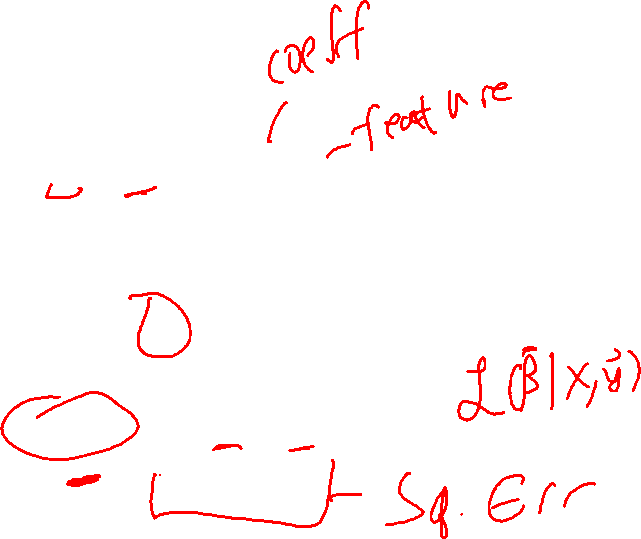 coeff
feature
L(β|X,y⃗)
Sq. Err